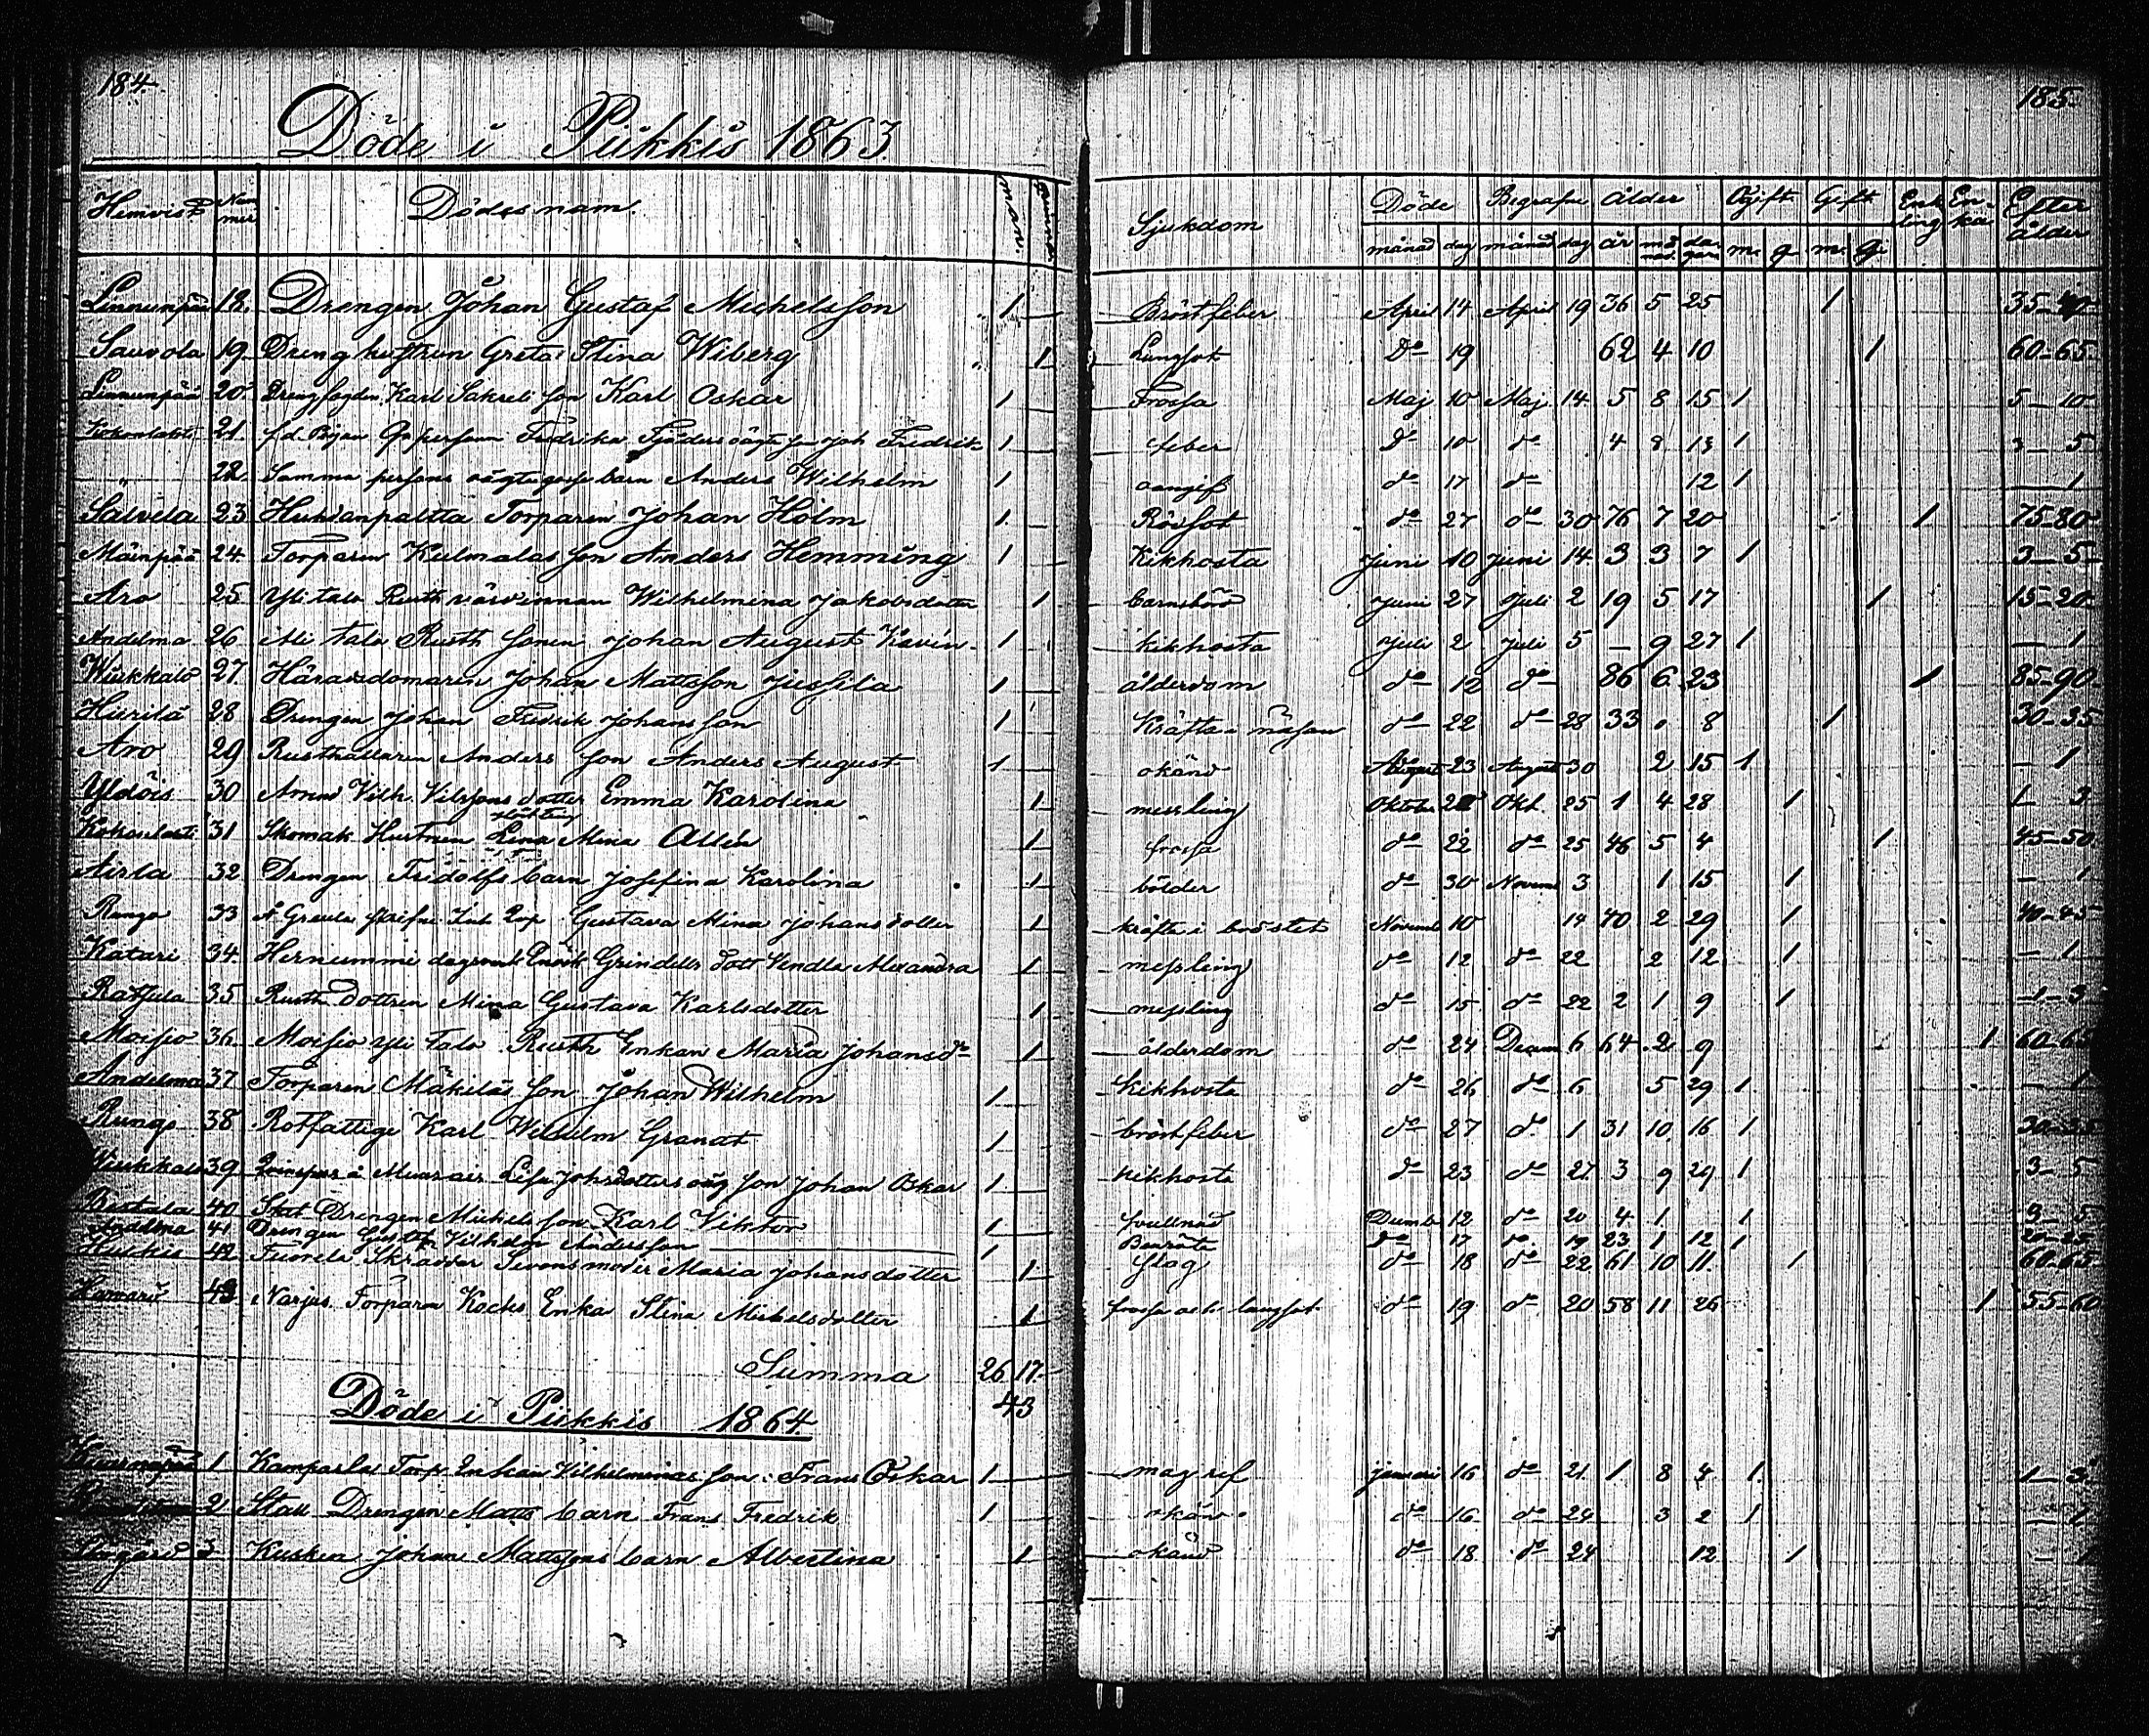 184.
185.
Döde i Piikkis 1863
Hemvist Nummer Dödas namn. mankön. qvinkön Sjukdom Döde Begrafne Ålder Ogift Gift Enkling Enka Efter ålder
månad dag månad dag år månad. dagar m. q. m. q.
Linnunpää 18. Drengen Johan Gustaf Michelsson 1 Bröstfeber April 14 April 19 36 5 25 1 35-40
Sauvola 19. Dreng hustrun Greta Stina Wiberg 1 Lungsot Do 19 62 4 10 1 60-65
Linnunpää 20. Drengfogden Karl Sakreli son Karl Oskar 1 Frossa Maj 10 Maj 14 5 8 15 1 5-10
21. f.d. Pigan Fredrika oägta son Joh Fredrik 1 feber Do 10 do 4 8 13 1 3-5
22. Samma persons oägta gosse barn Anders Wilhelm 1 oangif do 17 do 12 1 -1
Salvela 23 Torparen Johan Holm 1 Rödsot do 27 do 30 76 7 20 1 75-80
Mäinpää 24. Torparen Kulmalas son Anders Hemming 1 Kikhosta Juni 10 Juni 14 3 3 7 1 3-5
Aro 25 Yli talo Rusth värdinnan Wilhelmina Jakobsdotter 1 barnsbörd Juni 27 Juli 2 19 5 17 1 15-20
Andelma 26 Ali talo Rusth sonen Johan August 1 kikhosta Juli 2 Juli 5 - 9 27 1 -1
Wiukkala 27. Häradsdomaren Johan Mattsson Jussila 1 ålderdom do 12 do 86 6 23 1 85-90
Hurila 28 Drengen Johan Fredrik Johansson 1 Kräfta i näsan do 22 do 28 33 8 1 30-35
Aro 29 Rusthållaren Anders son Anders August 1 okänd August 23 August 30 2 15 1 -1
Yldöis 30 Vilh. dotter Emma Karolina 1 messling Oktober Okt. 25 1 4 28 1 1-3
31 Skomak Hustrun Lena Mina Allén 1 frossa do 22 do 25 46 5 4 1 45-50
Airla 32 Drengen Fridolfs barn Josefina Karolina 1 bölder do 30 Novem 3 1 15 1 -1
Rungo 33 Gustava Mina Johansdotter 1 kräfta i bröstet Novemb 10 14 40 2 29 1 40-45
Katari 34. Hernummi Grindells dott Vendla Alexandra 1 messling do 12 do 22 2 12 1 -1
35 Rusth dottren Mina Gustava Karlsdotter 1 messling do 15 do 22 2 1 9 1 1-3
Moisio 36. Moisio yli talo Rusth Enkan Maria Johansdr 1 ålderdom do 24 Decem 6 64 2 9 1 60-65
Andelma 37 Torparen Mäkiläs son Johan Wilhelm 1 Kikhosta do 26 do 6 5 29 1 -1
Rungo 38 Rotfattige Karl Wilhelm Granat 1 bröstfeber do 27 do 1 31 10 16 1 30-35
Wiukkala 39 Lisa Johsdotters oäg son Johan Oskar 1 kikhosta do 23 do 27 3 9 29 1 3-5
Bestala 40 Drengen Michels son Karl Viktor 1 svullnad Decemb 12 do 20 4 1 1 3-5
Andelma 41 Drengen Gustaf Vilhelm Andersson 1 Benröta do 17 do 19 23 1 12 1 20-25
42 Skräddar moder Maria Johansdotter 1 slag do 18 do 22 61 10 11 1 60-65
43 Narjus Torparen Kocks Enka Stina Michelsdotter 1 frossa och lungsot do 19 do 20 58 11 26 1 55-60
Summa 26 17
43
Döde i Piikkis 1864
1 Kamparla Torp Enkan Vilhelminas son Frans Oskar 1 mag ref januari 16 do 21 1 8 4 1 1-3
2 Drengen Matts barn Frans Fredrik 1 okänd do 16 do 24 3 2 1
3 Kusken Johan Mattssons barn Albertina 1 okänd do 18 do 24 12 1